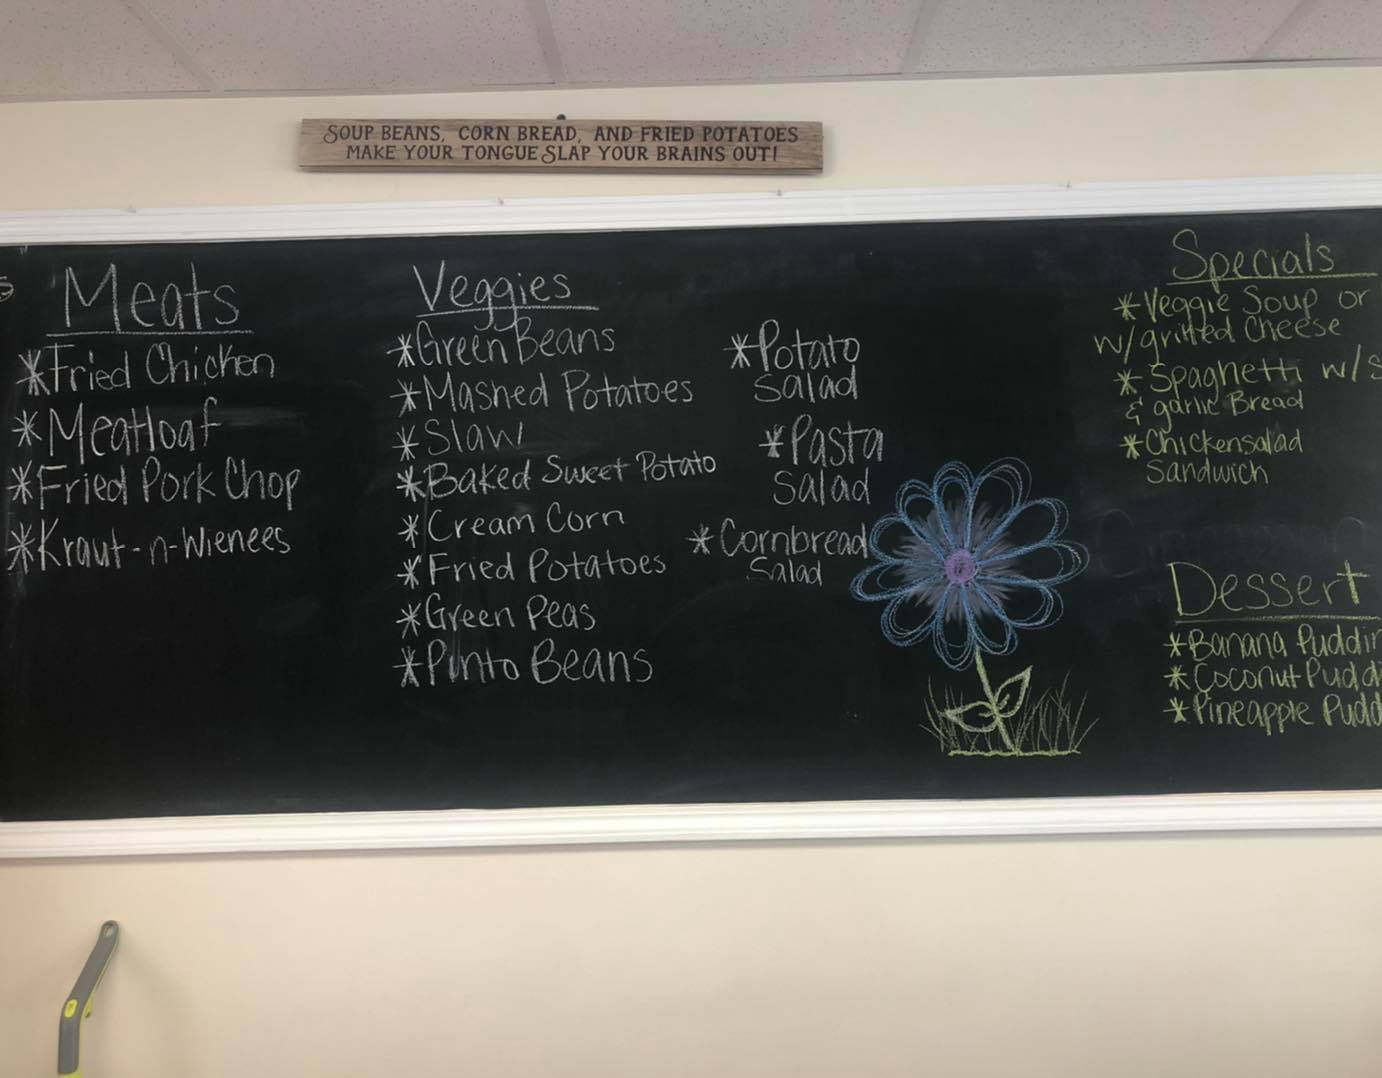 SOUP BEANS, CORN BREAD, AND FRIED POTATOES
MAKE YOUR TONGUE SLAP YOUR BRAINS OUT!
Meats
*Fried Chicken
*Meatloaf
*Fried Pork Chop
*Kraut-n-Wienees
Veggies
*Green Beans
*Mashed Potatoes
*Slaw
*Baked Sweet Potato
*Cream Corn
*Fried Potatoes
*Green Peas
*Pinto Beans
*Potato
Salad
*Pasta
Salad
*Cornbread
Salad
Specials
*Veggie Soup or
w/grilled Cheese
*Spaghetti w/s
& garlic Bread
*Chickensalad
Sandwich
Dessert
*Banana Puddin
*Coconut Puddi
*Pineapple Pudd